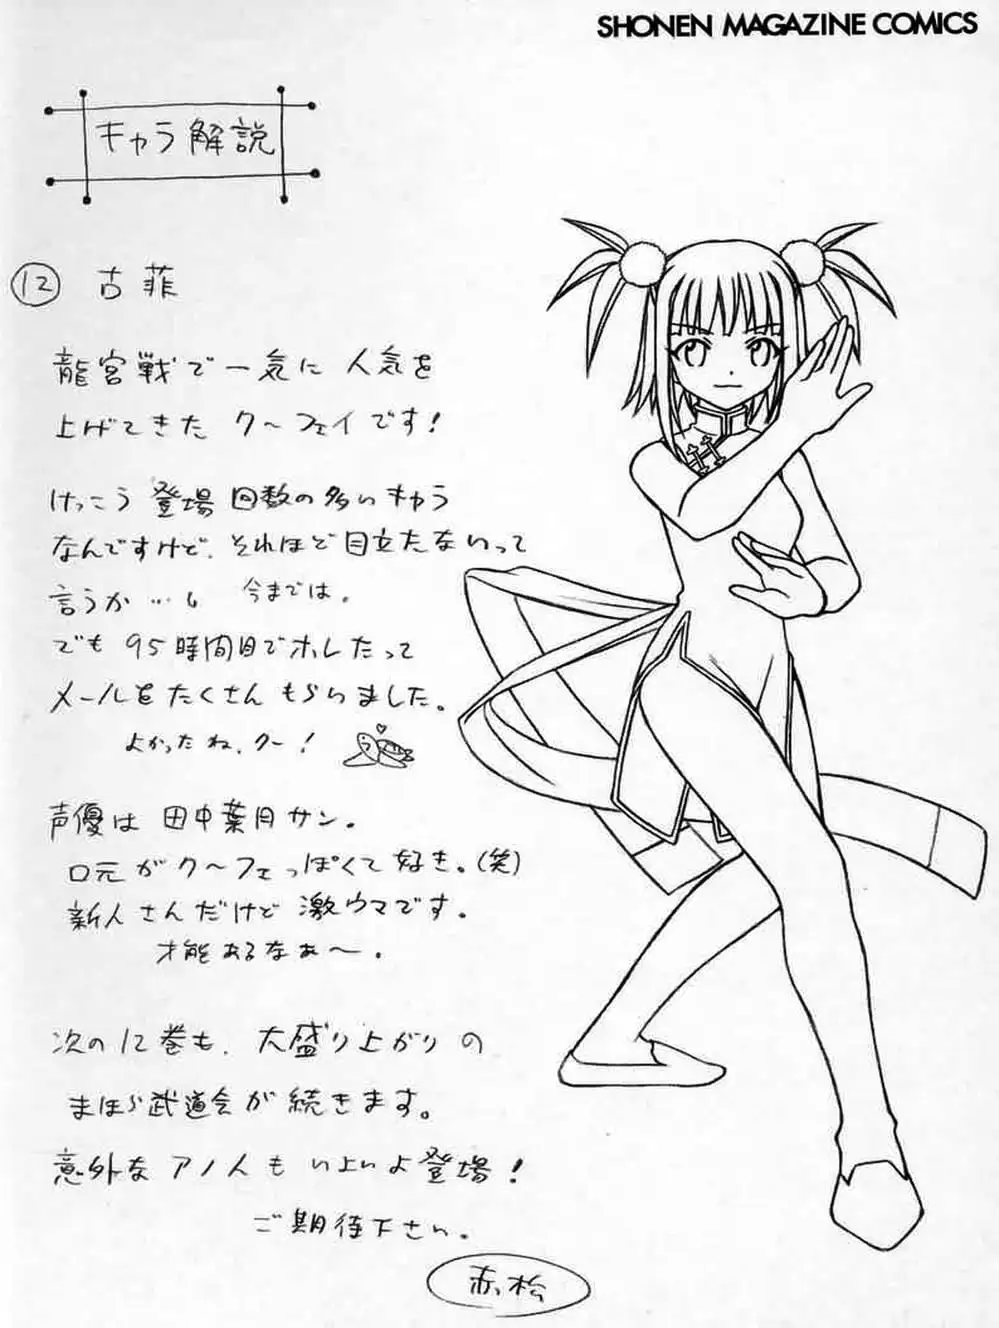 SHONEN MAGAZINE COMICS
キャラ解説
⑫ 古菲
龍宮戦で一気に人気を
上げてきた ク〜フェイです!
けっこう登場回数の多いキャラ
なんですけど、それほど目立たないって
言うか…。今までは。
でも95時間目でホレたって
メールをたくさんもらいました。
よかったね、ク〜!
声優は 田中葉月サン。
口元がク〜フェっぽくて好き。(笑)
新人さんだけど激ウマです。
才能あるなあ〜。
次の12巻も、大盛り上がりの
まほら武道会が続きます。
意外なアノ人もいよいよ登場!
ご期待下さい。
赤松